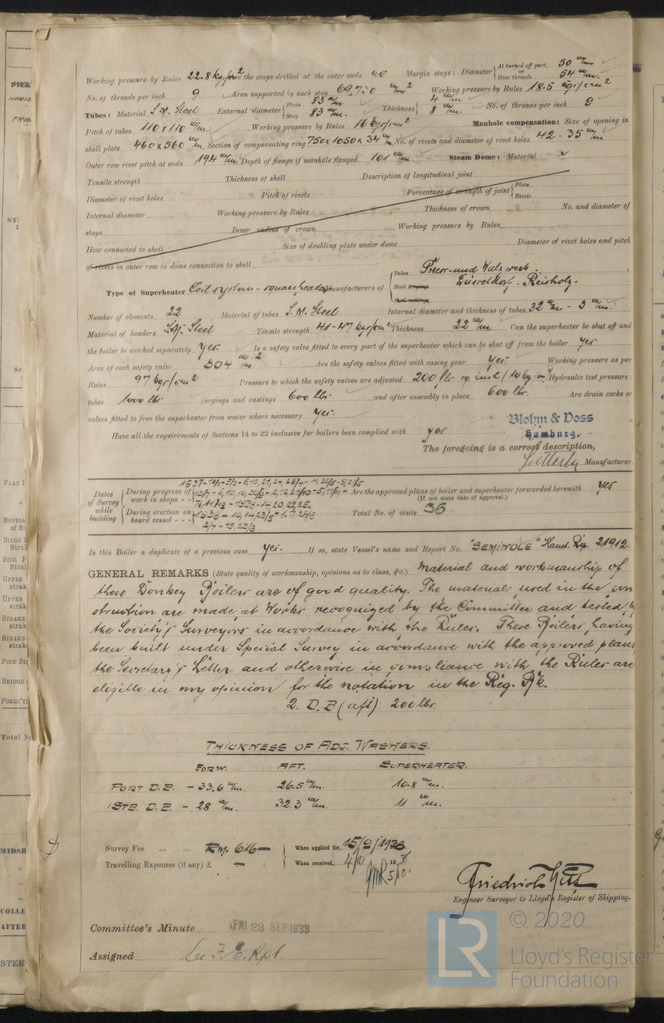 Working pressure by Rules 22.8 kg/cm² the stays drilled at the outer ends Margin stays: Diameter { At turned off part, 50 m/m or Over threads 54 m/m
No. of threads per inch 9 Area supported by each stay m/m² Working pressure by Rules 18.5 kgs/cm²
Tubes: Material S.M. Steel External diameter { Plain 83 m/m Stay 83 m/m Thickness { 4 m/m 8 m/m No. of threads per inch 9
Pitch of tubes 110 x 110 m/m Working pressure by Rules 16 kg/cm² Manhole compensation: Size of opening in
shell plate 460 x 360 m/m Section of compensating ring 750 x 1050 x 34 m/m No. of rivets and diameter of rivet holes 42 - 35 m/m
Outer row rivet pitch at ends 194 m/m Depth of flange if manhole flanged 101 m/m Steam Dome: Material
Tensile strength Thickness of shell Description of longitudinal joint
Diameter of rivet holes Pitch of rivets Percentage of strength of joint { Plate Rivets
Internal diameter Working pressure by Rules Thickness of crown No. and diameter of
stays Inner radius of crown Working pressure by Rules
How connected to shell Size of doubling plate under dome Diameter of rivet holes and pitch
of rivets in outer row in dome connection to shell
Type of Superheater Coil system - squareheaders Manufacturers of { Tubes Steel Press- und Walzwerk Düsseldorf - Reisholz.
Number of elements 22 Material of tubes S.M. Steel Internal diameter and thickness of tubes 32 m/m - 3 m/m
Material of headers S.M. Steel Tensile strength 41-47 kgs/cm² Thickness 22 m/m Can the superheater be shut off and
the boiler be worked separately yes. Is a safety valve fitted to every part of the superheater which can be shut off from the boiler yes
Area of each safety valve 504 m/m² Are the safety valves fitted with easing gear yes Working pressure as per
Rules kgs/cm² Pressure to which the safety valves are adjusted 200 lbs sq. inch Hydraulic test pressure:
tubes 1000 lbs forgings and castings 600 lbs and after assembly in place 600 lbs. Are drain cocks or
valves fitted to free the superheater from water where necessary yes.
Have all the requirements of Sections 14 to 22 inclusive for boilers been complied with yes
Blohm & Voss
Hamburg.
The foregoing is a correct description,
Manufacturer.
Dates of Survey while building { During progress of work in shops - - During erection on board vessel - - -
Are the approved plans of boiler and superheater forwarded herewith yes
(If not state date of approval.)
Total No. of visits 36
Is this Boiler a duplicate of a previous case yes. If so, state Vessel's name and Report No. "SEMINOLE" Hamb. Rep. 21912.
GENERAL REMARKS (State quality of workmanship, opinions as to class, &c.) Material and workmanship of
these Donkey Boilers are of good quality. The materials used in the con
struction are made at Works recognized by the Committee and tested by
the Society's Surveyors in accordance with the Rules. These Boilers having
been built under Special Survey in accordance with the approved plans
the Secretary's Letter and otherwise in compliance with the Rules are
eligible in my opinion for the notation in the Reg. Bk.
2. D.B (aft) 200 lbs.
THICKNESS OF ADJ. WASHERS.
FORW. AFT. SUPERHEATER.
PORT D.B. - 33.6 m/m. 26.5 m/m. 10.8 m/m.
STB. D.B. - 28 m/m. 32.3 m/m. 11 m/m.
Survey Fee ... ... Rm. 616 — When applied for, 15/9/1938
Travelling Expenses (if any) £ — When received, 4/10 1938
Friedrich
Engineer Surveyor to Lloyd's Register of Shipping.
Committee's Minute FRI 23 SEP 1938
Assigned See F.E. Rpt.
LR © 2020
Lloyd's Register
Foundation